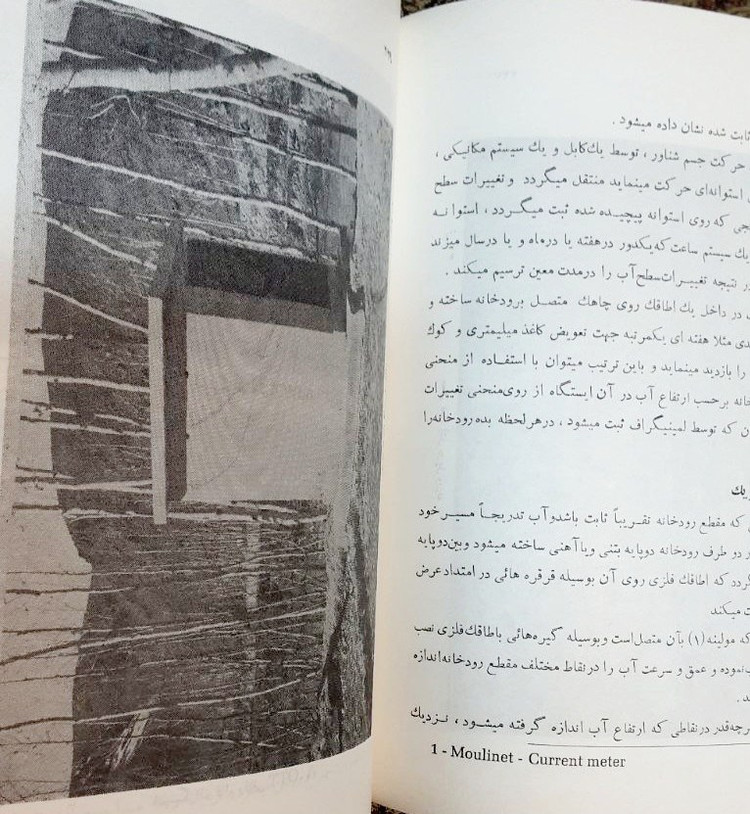 ثابت شده نشان داده میشود .
حرکت جسم شناور ، توسط یك‌کابل و یك سیستم مکانیکی ،
استوانه‌ای حرکت مینماید منتقل میگردد و تغییرات سطح
که روی استوانه پیچیده شده ثبت میگردد ، استوانه
یك سیستم ساعت که یکدور درهفته یا درماه و یا درسال میزند
در نتیجه تغییرات‌سطح‌آب را درمدت معین ترسیم میکند .
در داخل یك اطاقك روی چاهك متصل برودخانه ساخته و
مثلا هفته ای یکمرتبه جهت تعویض کاغذ میلیمتری و کوك
را بازدید مینماید و باین ترتیب میتوان با استفاده از منحنی
برحسب ارتفاع آب در آن ایستگاه از روی‌منحنی تغییرات
که توسط لمینیگراف ثبت میشود ، درهر لحظه بده رودخانه‌را
که مقطع رودخانه تقریباً ثابت باشدوآب تدریجاً مسیر خود
دو طرف رودخانه دوپایه بتنی ویاآهنی ساخته میشود وبین‌دوپایه
که اطاقك فلزی روی آن بوسیله قرقره هائی در امتداد عرض
میکند
که مولینه (۱) بآن متصل‌است وبوسیله گیره‌هائی بااطاقك‌فلزی نصب
نموده و عمق و سرعت آب را درنقاط مختلف مقطع رودخانه‌اندازه
درنقاطی که ارتفاع آب اندازه گرفته میشود ، نزدیك
1 - Moulinet - Current meter